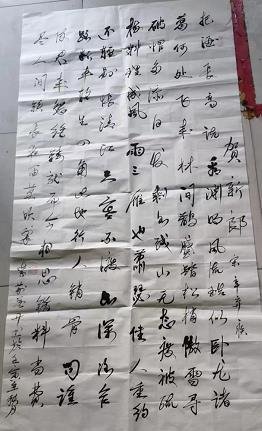 贺新郎 宋辛弃疾
把酒长亭说看渊明风流酷似卧龙诸
葛何处飞来林间鹊蹙踏松梢微雪
破帽多添白发剩水残山无态度被疏
梅料理成风月两三雁也萧瑟佳人重约
还轻别怅清江天寒不渡水深冰合
路断车轮生四角此地行人销骨问谁
使君来愁绝铸就而今相思错料当初费
尽人间铁长夜笛莫吹裂